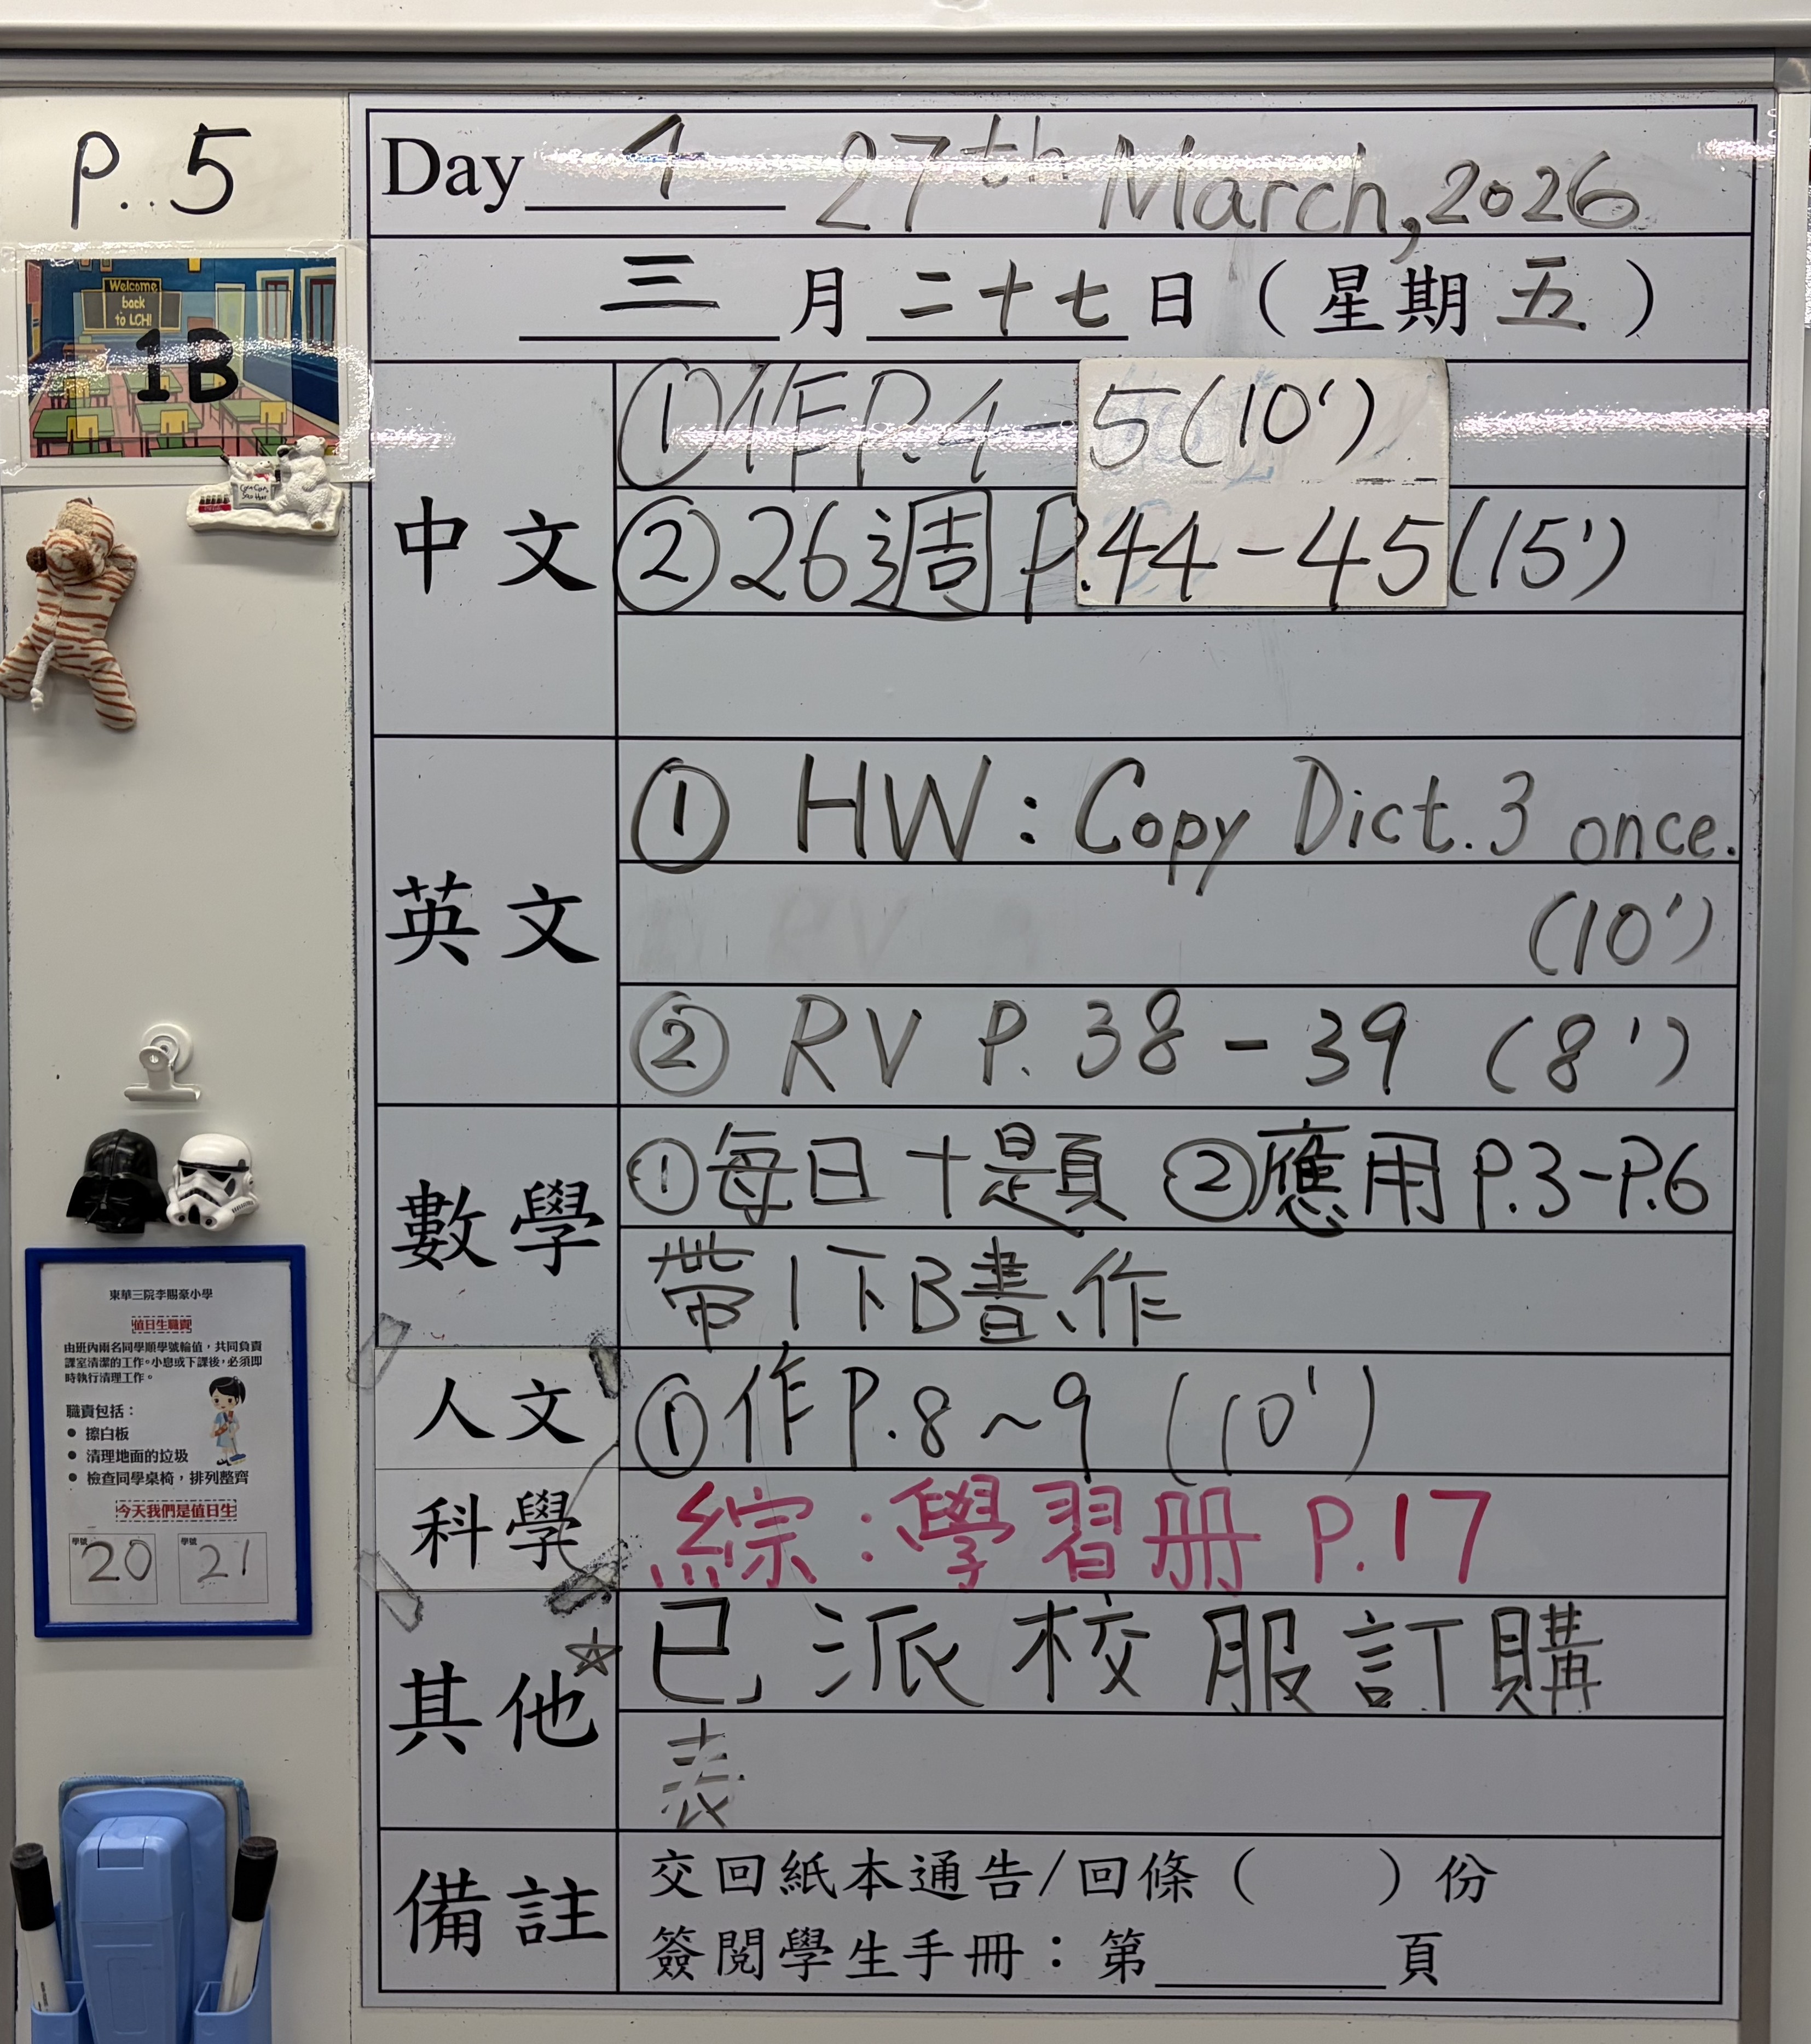 P..5
Welcome
back
to LCH!
1B
Day 4 27th March, 2026
三月二十七日(星期五)
中文
①作P.4-5(10')
②26週 P.44-45(15')
英文
① HW: Copy Dict. 3 once.
(10')
② RV P. 38-39 (8')
數學
①每日十題 ②應用P.3-P.6
帶1下B書、作
人文
①作P.8~9 (10')
科學
綜:學習册 P.17
其他
☆已派校服訂購
表
備註
交回紙本通告/回條( )份
簽閱學生手冊:第______頁
東華三院李賜豪小學
值日生職責
由班內兩名同學順學號輪值,共同負責
課室清潔的工作。小息或下課後,必須即
時執行清理工作。
職責包括:
● 擦白板
● 清理地面的垃圾
● 檢查同學桌椅,排列整齊
今天我們是值日生
學號 20 學號 21